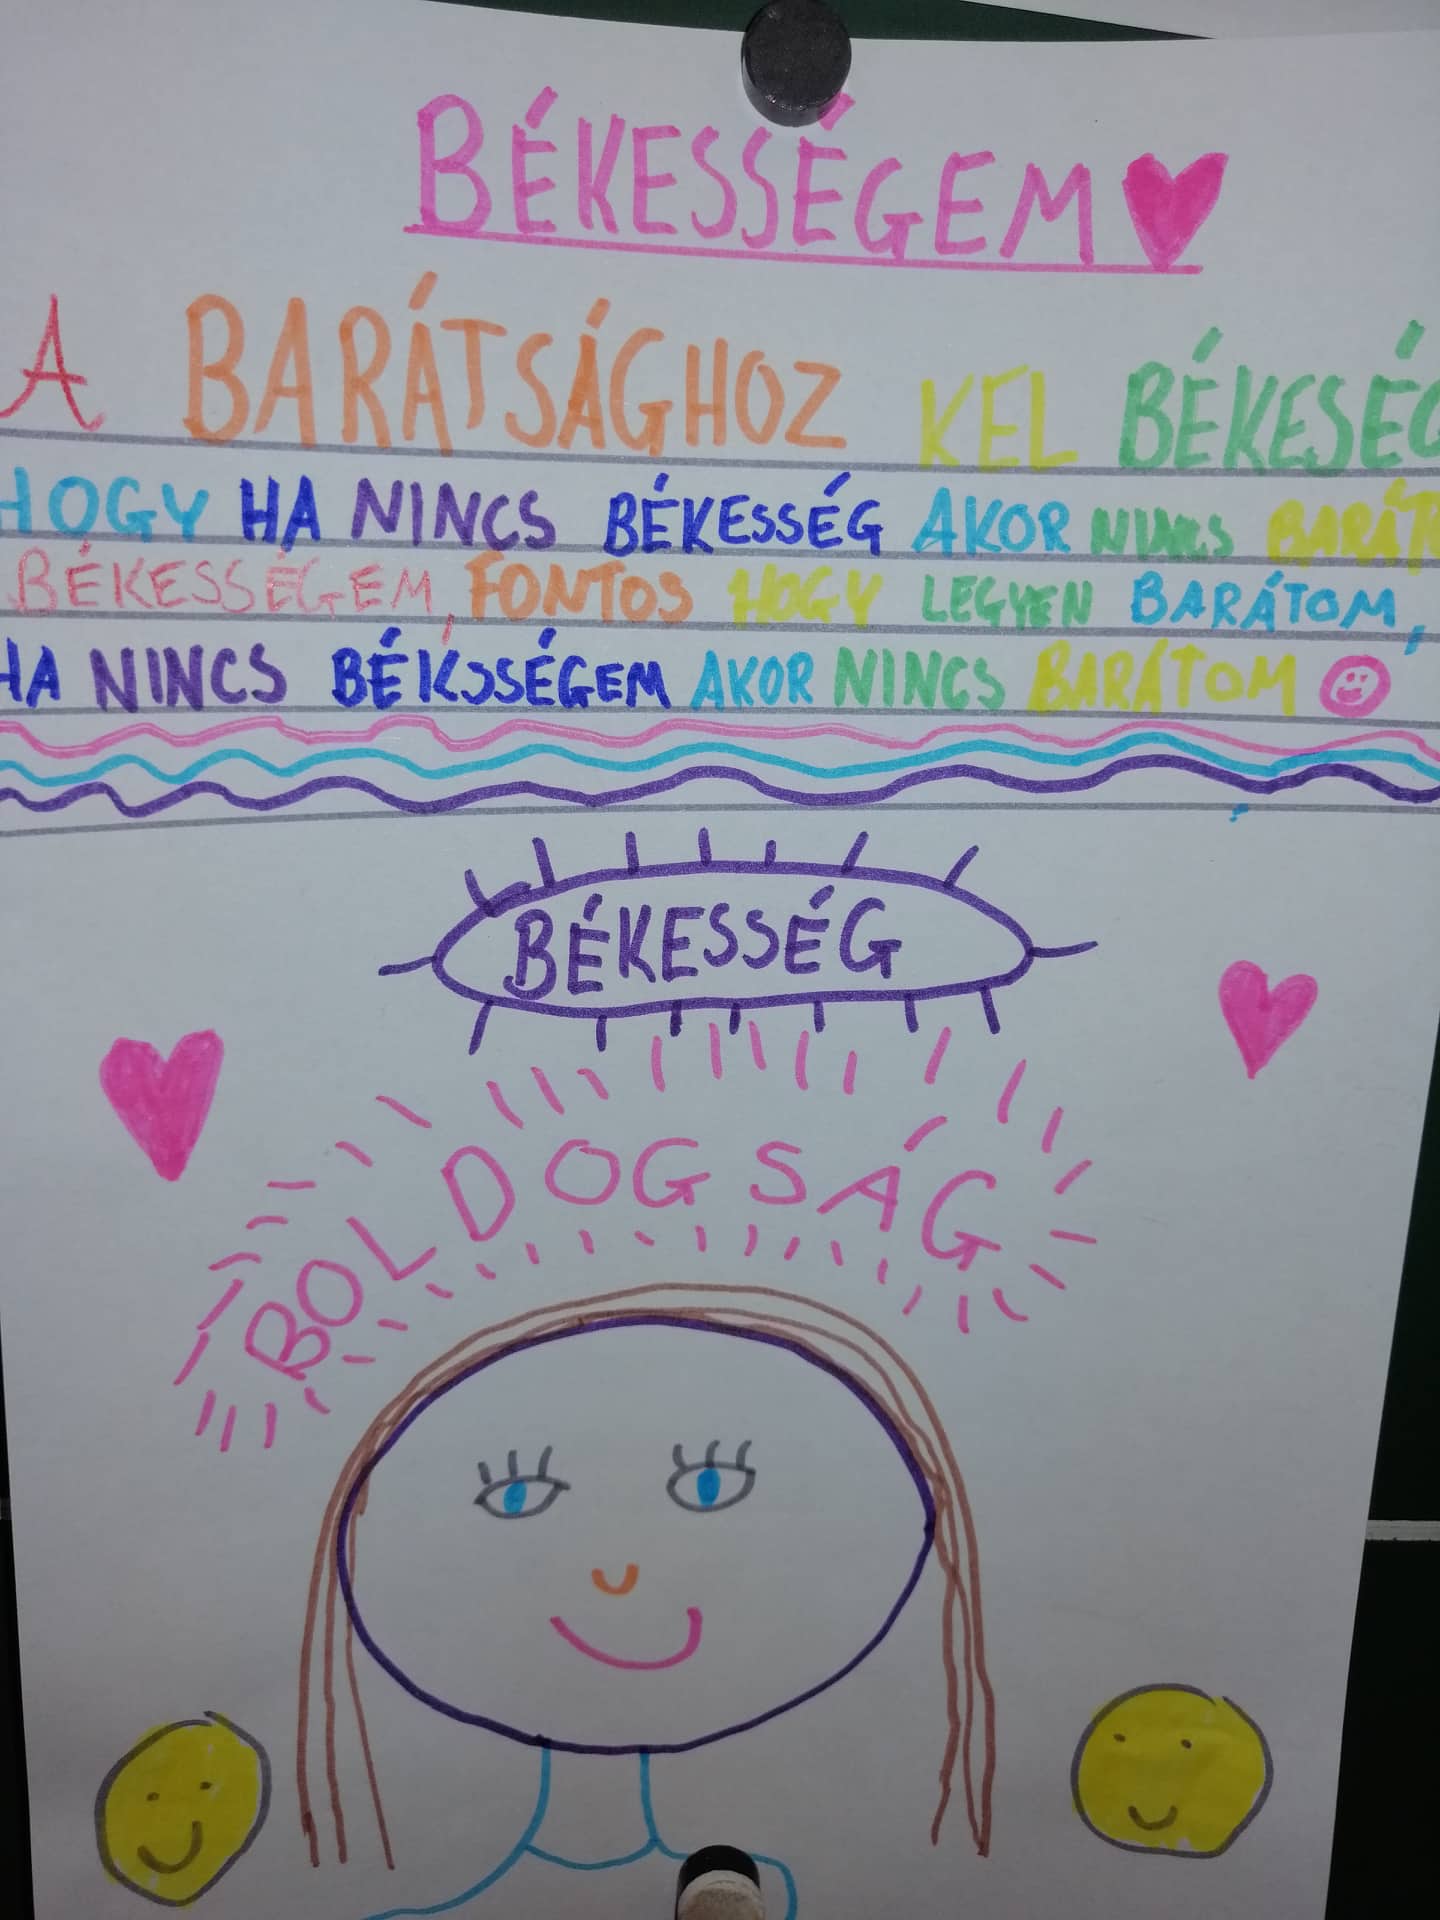 BÉKESSÉGEM
A BARÁTSÁGHOZ KEL BÉKESÉG
HOGY HA NINCS BÉKESSÉG AKOR NINCS
BÉKESSÉGEM, FONTOS HOGY LEGYEN BARÁTOM,
HA NINCS BÉKSSÉGEM AKOR NINCS BARÁTOM
BÉKESSÉG
BOLDOGSÁG